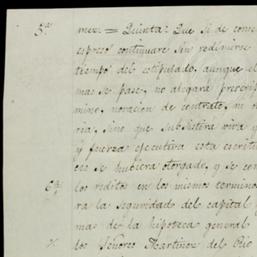 5.ª mez = Quinta: Que si de conse
espreso continuare sin redimirse
tiempo del estipulado, aunque el
mas se pase, no alegará prescrip
mino, novacion de contrato, ni o
ria, sino que subsistira viva y
y fuerza ejecutiva esta escritu
ese se hubiera otorgado, y se con
los reditos en los mismos termino
6.ª ra la Seguridad del capital y
mas de la hipoteca general
los Señores Martinez del Rio